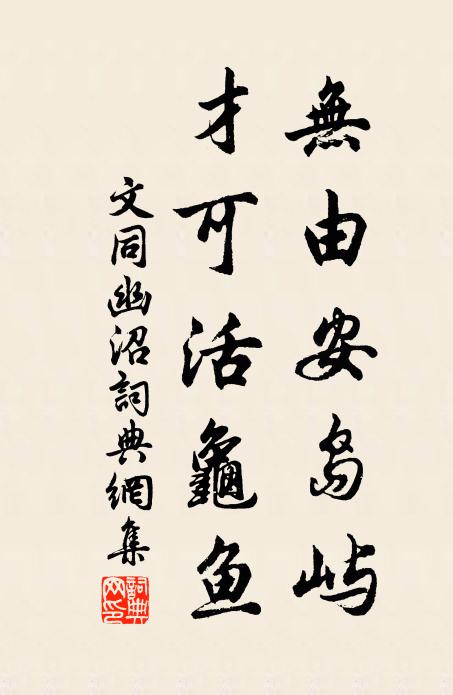 無由安島嶼
才可活龜魚
文同幽沼詞典網集
詞典網印